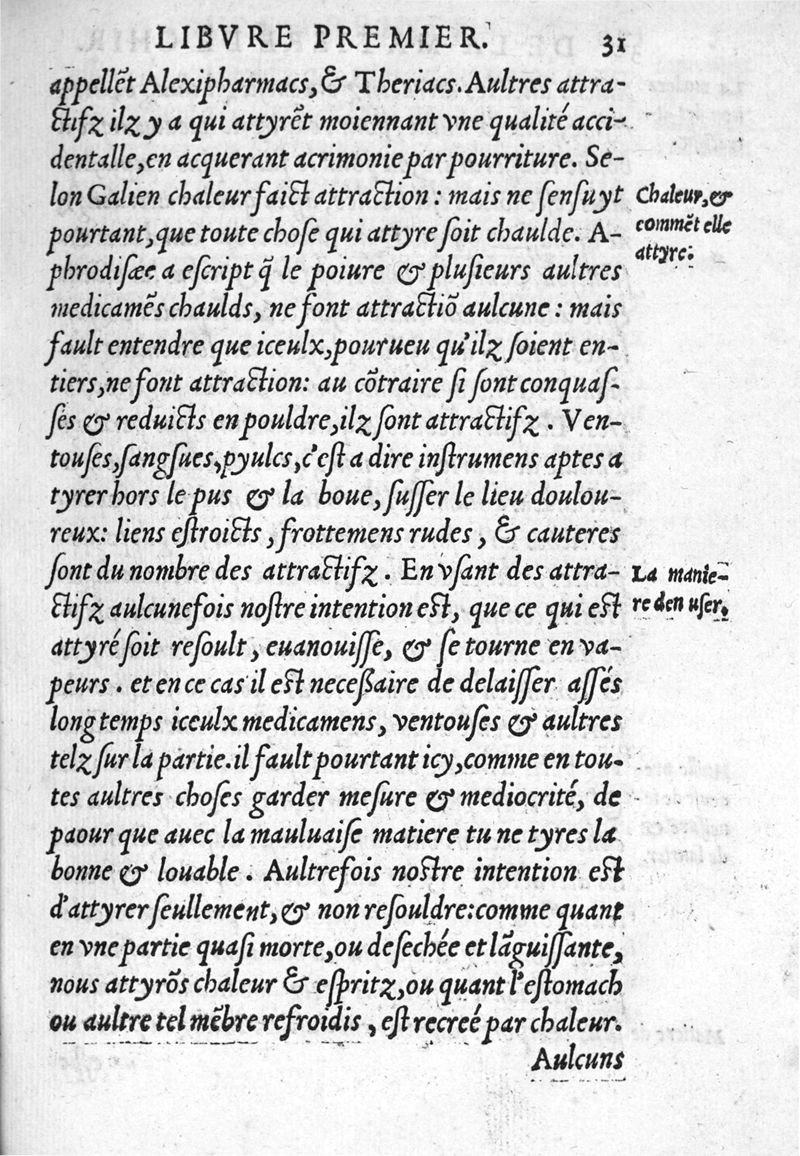 LIBVRE PREMIER. 31
appellẽt Alexipharmacs, & Theriacs. Aultres attra-
ctifz ilz y a qui attyrẽt moiennant vne qualité acci-
dentalle, en acquerant acrimonie par pourriture. Se-
lon Galien chaleur faict attraction : mais ne ſenſuyt
pourtant, que toute choſe qui attyre ſoit chaulde. A-
phrodiſæe a eſcript q̃ le poiure & pluſieurs aultres
medicamẽs chaulds, ne font attractiõ aulcune : mais
fault entendre que iceulx, pourueu qu'ilz ſoient en-
tiers, ne font attraction: au cõtraire ſi ſont conquaſ-
ſés & reduicts en pouldre, ilz ſont attractifz . Ven-
touſes, ſangſues, pyulcs, c'eſt a dire inſtrumens aptes a
tyrer hors le pus & la boue, ſuſſer le lieu doulou-
reux: liens eſtroicts , frottemens rudes , & cauteres
ſont du nombre des attractifz . En vſant des attra-
ctifz aulcunefois noſtre intention eſt, que ce qui eſt
attyré ſoit reſoult , euanouiſſe, & ſe tourne en va-
peurs . et en ce cas il eſt neceßaire de delaiſſer aſſés
long temps iceulx medicamens, ventouſes & aultres
telz ſur la partie. il fault pourtant icy, comme en tou-
tes aultres choſes garder meſure & mediocrité, de
paour que auec la mauluaiſe matiere tu ne tyres la
bonne & louable . Aultrefois noſtre intention eſt
d'attyrer ſeullement, & non reſouldre: comme quant
en vne partie quaſi morte, ou deſechée et lãguiſſante,
nous attyrõs chaleur & eſpritz, ou quant l'eſtomach
ou aultre tel mẽbre refroidis , eſt recreé par chaleur.
Aulcuns
Chaleur, &
commẽt elle
attyre.
La manie-
re den uſer.